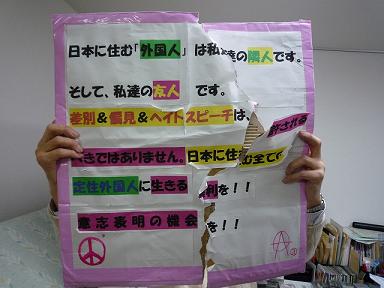 日本に住む「外国人」は私達の隣人です。
そして、私達の友人です。
差別＆偏見＆ヘイトスピーチは、許される
べきではありません。日本に住む全ての
定住外国人に生きる権利を！！
意志表明の機会を！！